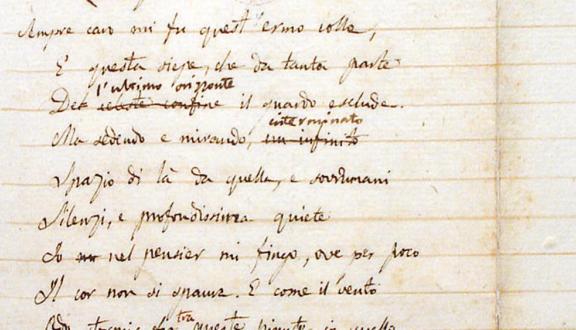 Sempre caro mi fu quest'ermo colle,
E questa siepe, che da tanta parte
l'ultimo orizzonte
Del celeste confine il guardo esclude.
interminato
Ma sedendo e mirando, un infinito
Spazio di là da quella, e sovrumani
Silenzi, e profondissima quiete
Io nel pensier mi fingo, ove per poco
Il cor non si spaura. E come il vento
tra queste piante, io quello